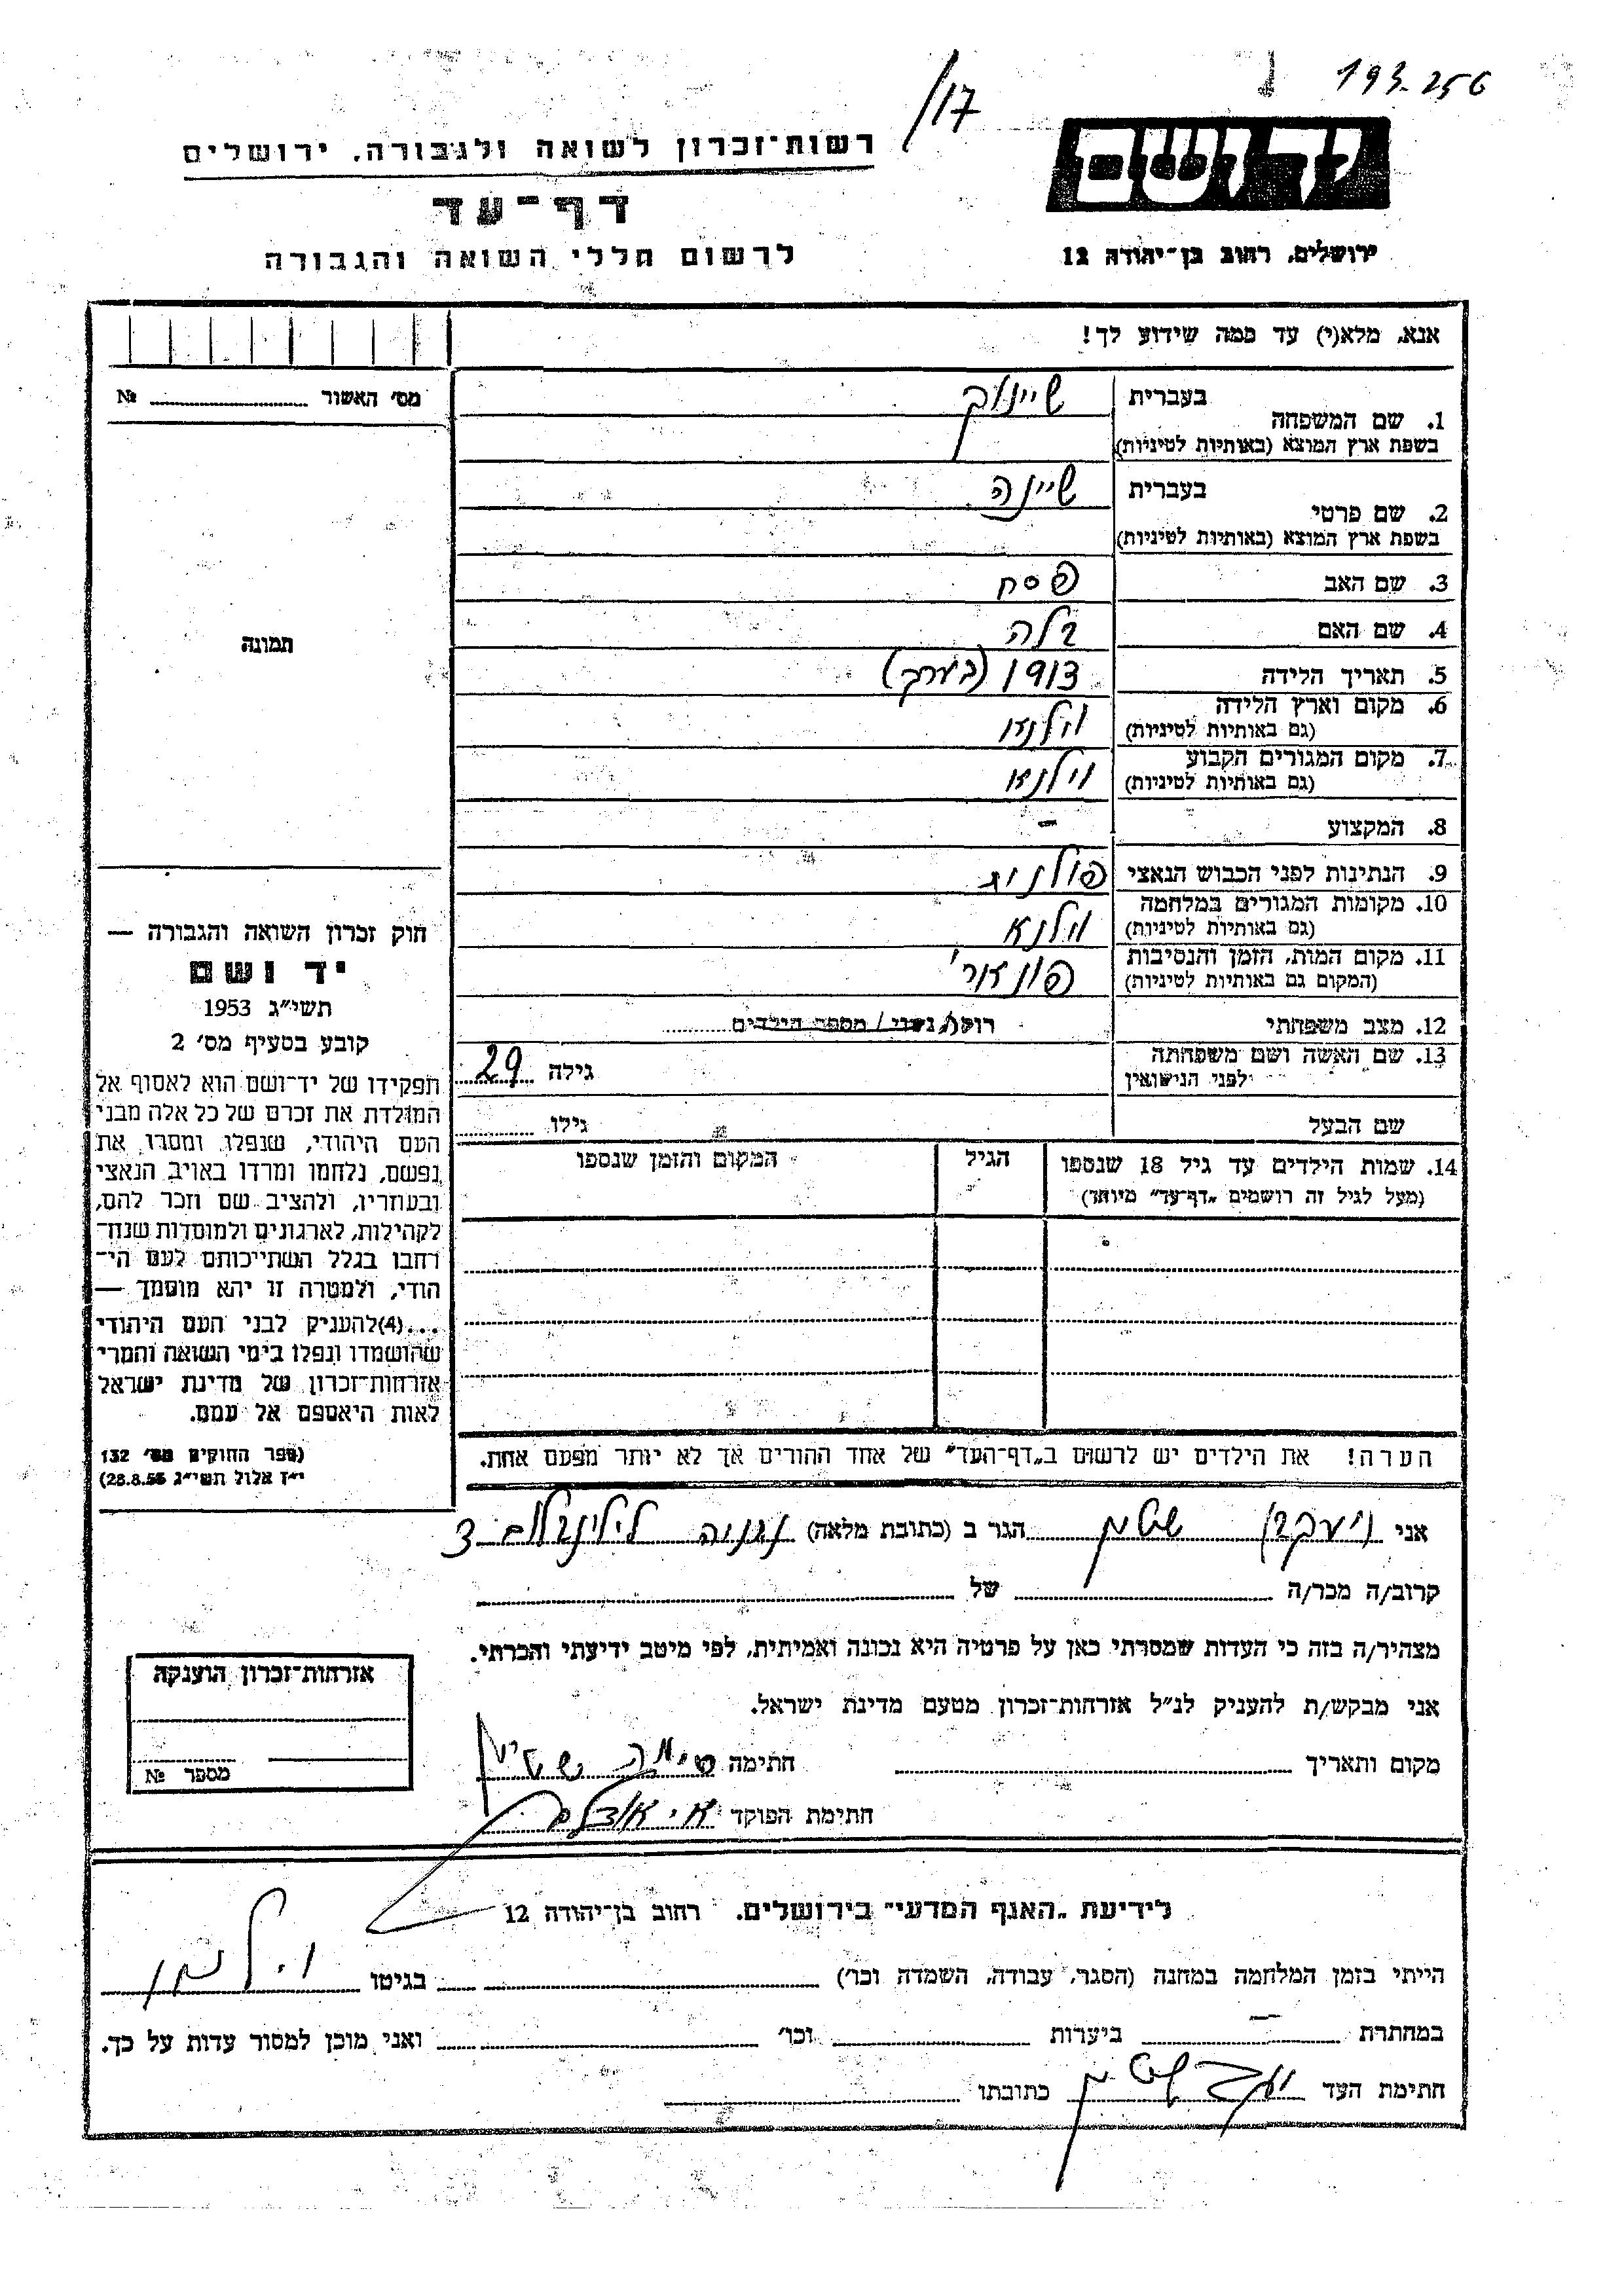 193.256
/17
יד ושם
רשות־זכרון לשואה ולגבורה, ירושלים
דף־עד
לרשום חללי השואה והגבורה
ירושלים, רחוב בן־יהודה 12
אנא, מלא(י) עד כמה שידוע לך!
מס׳ האשור № 
1. שם המשפחה
בעברית
בשפת ארץ המוצא (באותיות לטיניות)
2. שם פרטי
בעברית שיינה
בשפת ארץ המוצא (באותיות לטיניות)
3. שם האב פסח
4. שם האם
5. תאריך הלידה 1913 (בערך)
6. מקום וארץ הלידה וילנא
(גם באותיות לטיניות)
7. מקום המגורים הקבוע וילנא
(גם באותיות לטיניות)
8. המקצוע -
9. הנתינות לפני הכבוש הנאצי פולנית
10. מקומות המגורים במלחמה וילנא
(גם באותיות לטיניות)
11. מקום המות, הזמן והנסיבות פונארי
(המקום גם באותיות לטיניות)
12. מצב משפחתי רווק/ נשוי / מספר הילדים
13. שם האשה ושם משפחתה גילה 29
לפני הנישואין
שם הבעל גילו
14. שמות הילדים עד גיל 18 שנספו
(מעל לגיל זה רושמים „דף־עד״ מיוחד)
הגיל
המקום והזמן שנספו
הערה! את הילדים יש לרשום ב„דף־העד״ של אחד ההורים אך לא יותר מפעם אחת.
תמונה
חוק זכרון השואה והגבורה —
יד ושם
תשי״ג 1953
קובע בסעיף מס׳ 2
תפקידו של יד־ושם הוא לאסוף אל
המולדת את זכרם של כל אלה מבני
העם היהודי, שנפלו ומסרו את
נפשם, נלחמו ומרדו באויב הנאצי
ובעוזריו, ולהציב שם וזכר להם,
לקהילות, לארגונים ולמוסדות שנח־
רחבו בגלל השתייכותם לעם הי־
הודי, ולמטרה זו יהא מוסמך —
...(4)להעניק לבני העם היהודי
שהושמדו ונפלו בימי השואה והמרי
אזרחות־זכרון של מדינת ישראל
לאות היאספם אל עמם.
(ספר החוקים מס׳ 132
י״ז אלול תשי״ג 28.8.55)
אני (יעקב) הגר ב (כתובת מלאה) נתניה 3
קרוב/ה מכר/ה של
מצהיר/ה בזה כי העדות שמסרתי כאן על פרטיה היא נכונה ואמיתית, לפי מיטב ידיעתי והכרתי.
אני מבקש/ת להעניק לנ״ל אזרחות־זכרון מטעם מדינת ישראל.
מקום ותאריך חתימה
חתימת הפוקד
אזרחות־זכרון הוענקה
מספר №
לידיעת „האגף המדעי״ בירושלים. רחוב בן־יהודה 12
הייתי בזמן המלחמה במחנה (הסגר, עבודה, השמדה וכו׳) בגיטו
במחתרת ביערות וכו׳ ואני מוכן למסור עדות על כך.
חתימת העד כתובתו